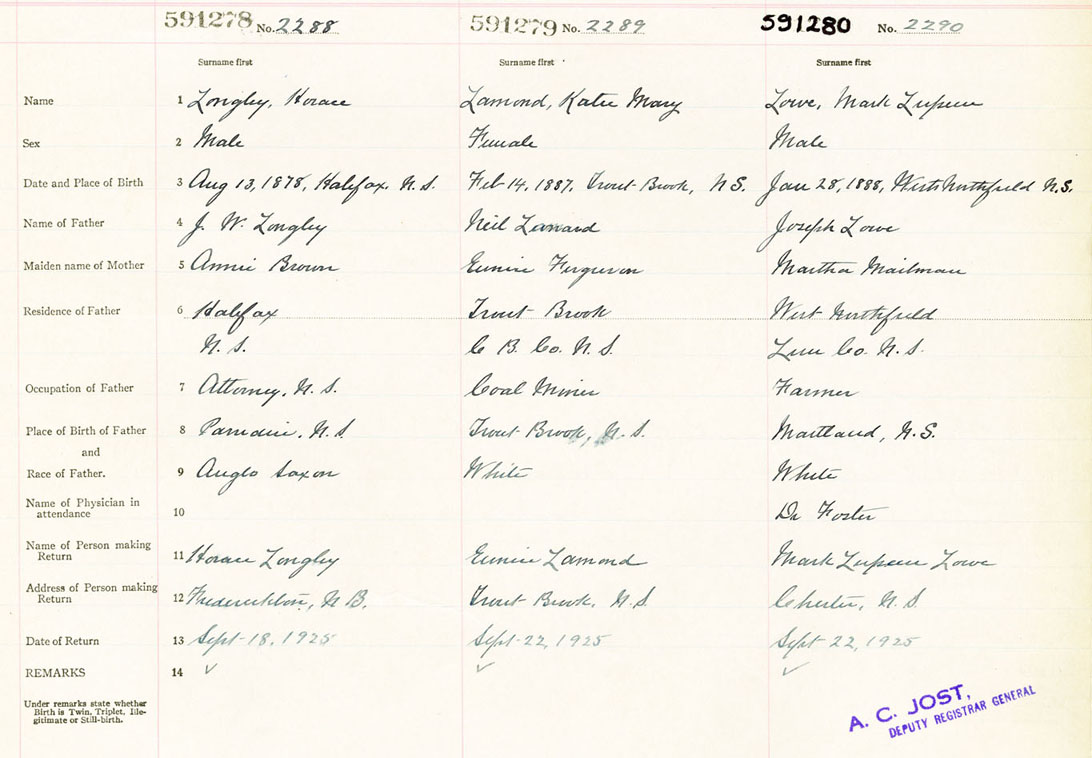 591278 No. 2288 591279 No. 2289 591280 No. 2290
Surname first Surname first Surname first
Name 1 Longley, Horace Lamond, Katie Mary Lowe, Mark
Sex 2 Male Female Male
Date and Place of Birth 3 Aug 13, 1878, Halifax, N.S. Feb 14, 1887, Trout Brook, N.S. Jan 28, 1888, West Northfield N.S.
Name of Father 4 J. W. Longley Neil Lamond Joseph Lowe
Maiden name of Mother 5 Annie Brown Eunice Ferguson Martha Mailman
Residence of Father 6 Halifax Trout Brook West Northfield
N.S. C B. Co. N.S. Lun Co. N.S.
Occupation of Father 7 Attorney, N.S. Coal Miner Farmer
Place of Birth of Father 8 Paradise, N.S. Trout Brook, N.S. Maitland, N.S.
and
Race of Father. 9 Anglo Saxon White White
Name of Physician in
attendance 10 Dr Foster
Name of Person making
Return 11 Horace Longley Eunice Lamond Mark Lowe
Address of Person making
Return 12 Fredericton, N B. Trout Brook, N.S. Chester, N.S.
Date of Return 13 Sept 18, 1925 Sept 22, 1925 Sept 22, 1925
REMARKS 14 ✓ ✓ ✓
Under remarks state whether
Birth is Twin, Triplet, Ille-
gitimate or Still-birth.
A. C. JOST,
DEPUTY REGISTRAR GENERAL